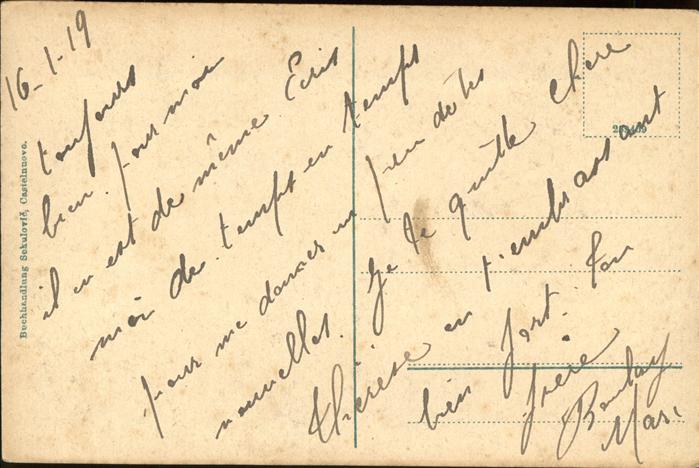 16-1-19
toujours
bien. pour moi
il en est de même Ecris
moi de temps en temps
pour me donner un peu de tes
nouvelles. Je te quitte chere
thérèse en t'embrassant
bien fort. ton
frère
Mari
Buchhandlung Sekulović, Castelnuovo.